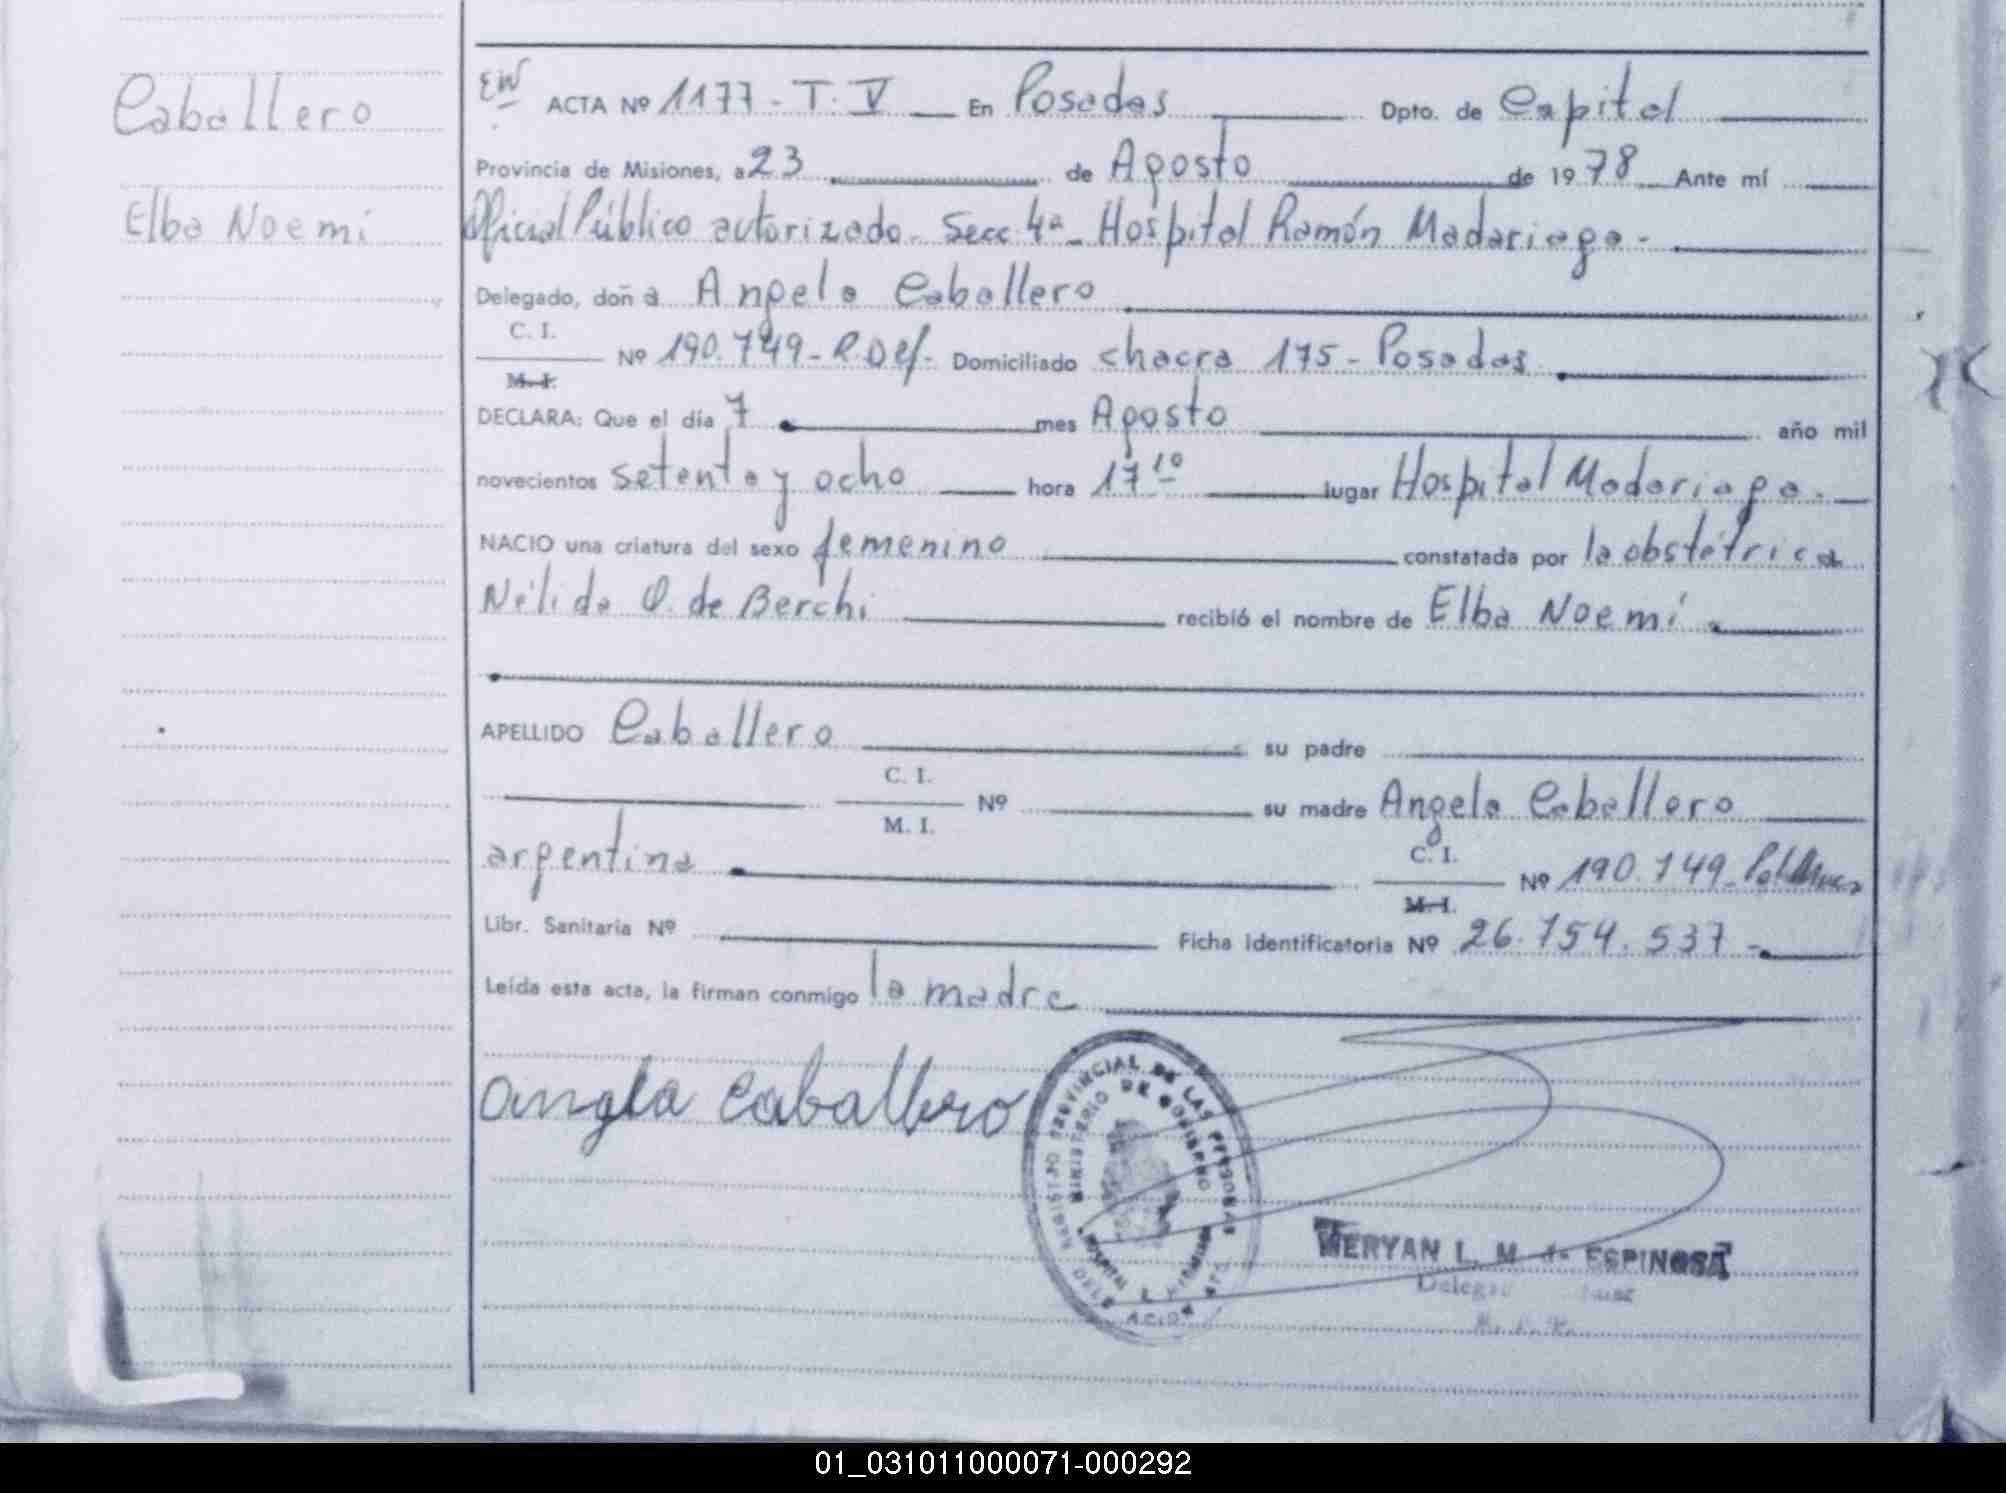 Caballero
Elba Noemí
EW ACTA Nº 1177 - T. V En Posadas Dpto. de Capital
Provincia de Misiones, a 23 de Agosto de 1978 Ante mí
Oficial Público autorizado - Secc 4ª - Hospital Ramón Madariaga -
Delegado, doña Angela Caballero
C. I.
M. I.
Nº 190.749 - R. Def - Domiciliado chacra 175 - Posadas
DECLARA: Que el día 7 mes Agosto año mil
novecientos setenta y ocho hora 17 10 lugar Hospital Madariaga.
NACIO una criatura del sexo femenino constatada por la obstétrica
Nélida O. de Berchi recibió el nombre de Elba Noemí
APELLIDO Caballero su padre
C. I.
M. I.
Nº su madre Angela Caballero
argentina
C. I.
M. I.
Nº 190.749 - Pol
Libr. Sanitaria Nº Ficha Identificatoria Nº 26.754.537 -
Leída esta acta, la firman conmigo la madre
Angela Caballero
REGISTRO PROVINCIAL DE LAS PERSONAS
MINISTERIO DE GOBIERNO
HOSPITAL
MERYAN L. M. de ESPINOSA
01_031011000071-000292